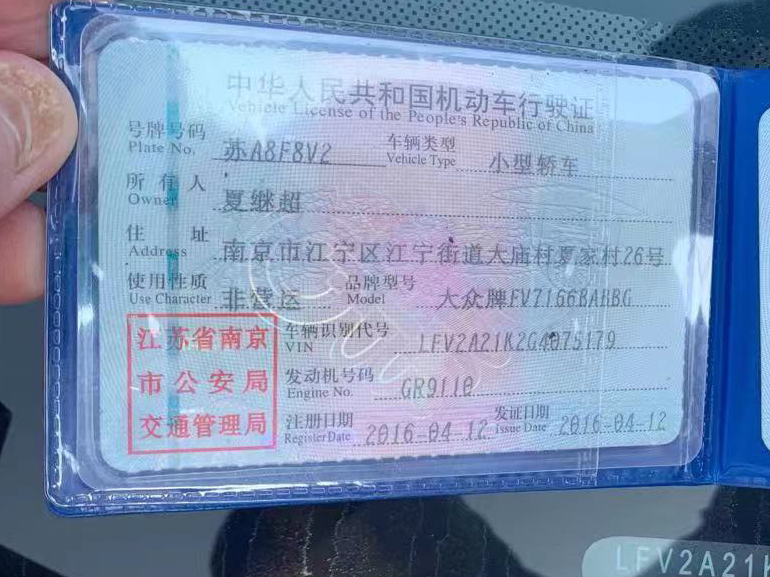 中华人民共和国机动车行驶证
Vehicle License of the People's Republic of China
号牌号码 苏A8F8V2 车辆类型 小型轿车
Plate No. Vehicle Type
所有人 夏继超
Owner
住址 南京市江宁区江宁街道大庙村夏家村26号
Address
使用性质 非营运 品牌型号 大众牌FV7166BABBG
Use Character Model
江苏省南京
市公安局
交通管理局
车辆识别代号 LFV2A21K2G4075179
VIN
发动机号码 GR9110
Engine No.
注册日期 2016-04-12 发证日期 2016-04-12
Register Date Issue Date
LFV2A21K